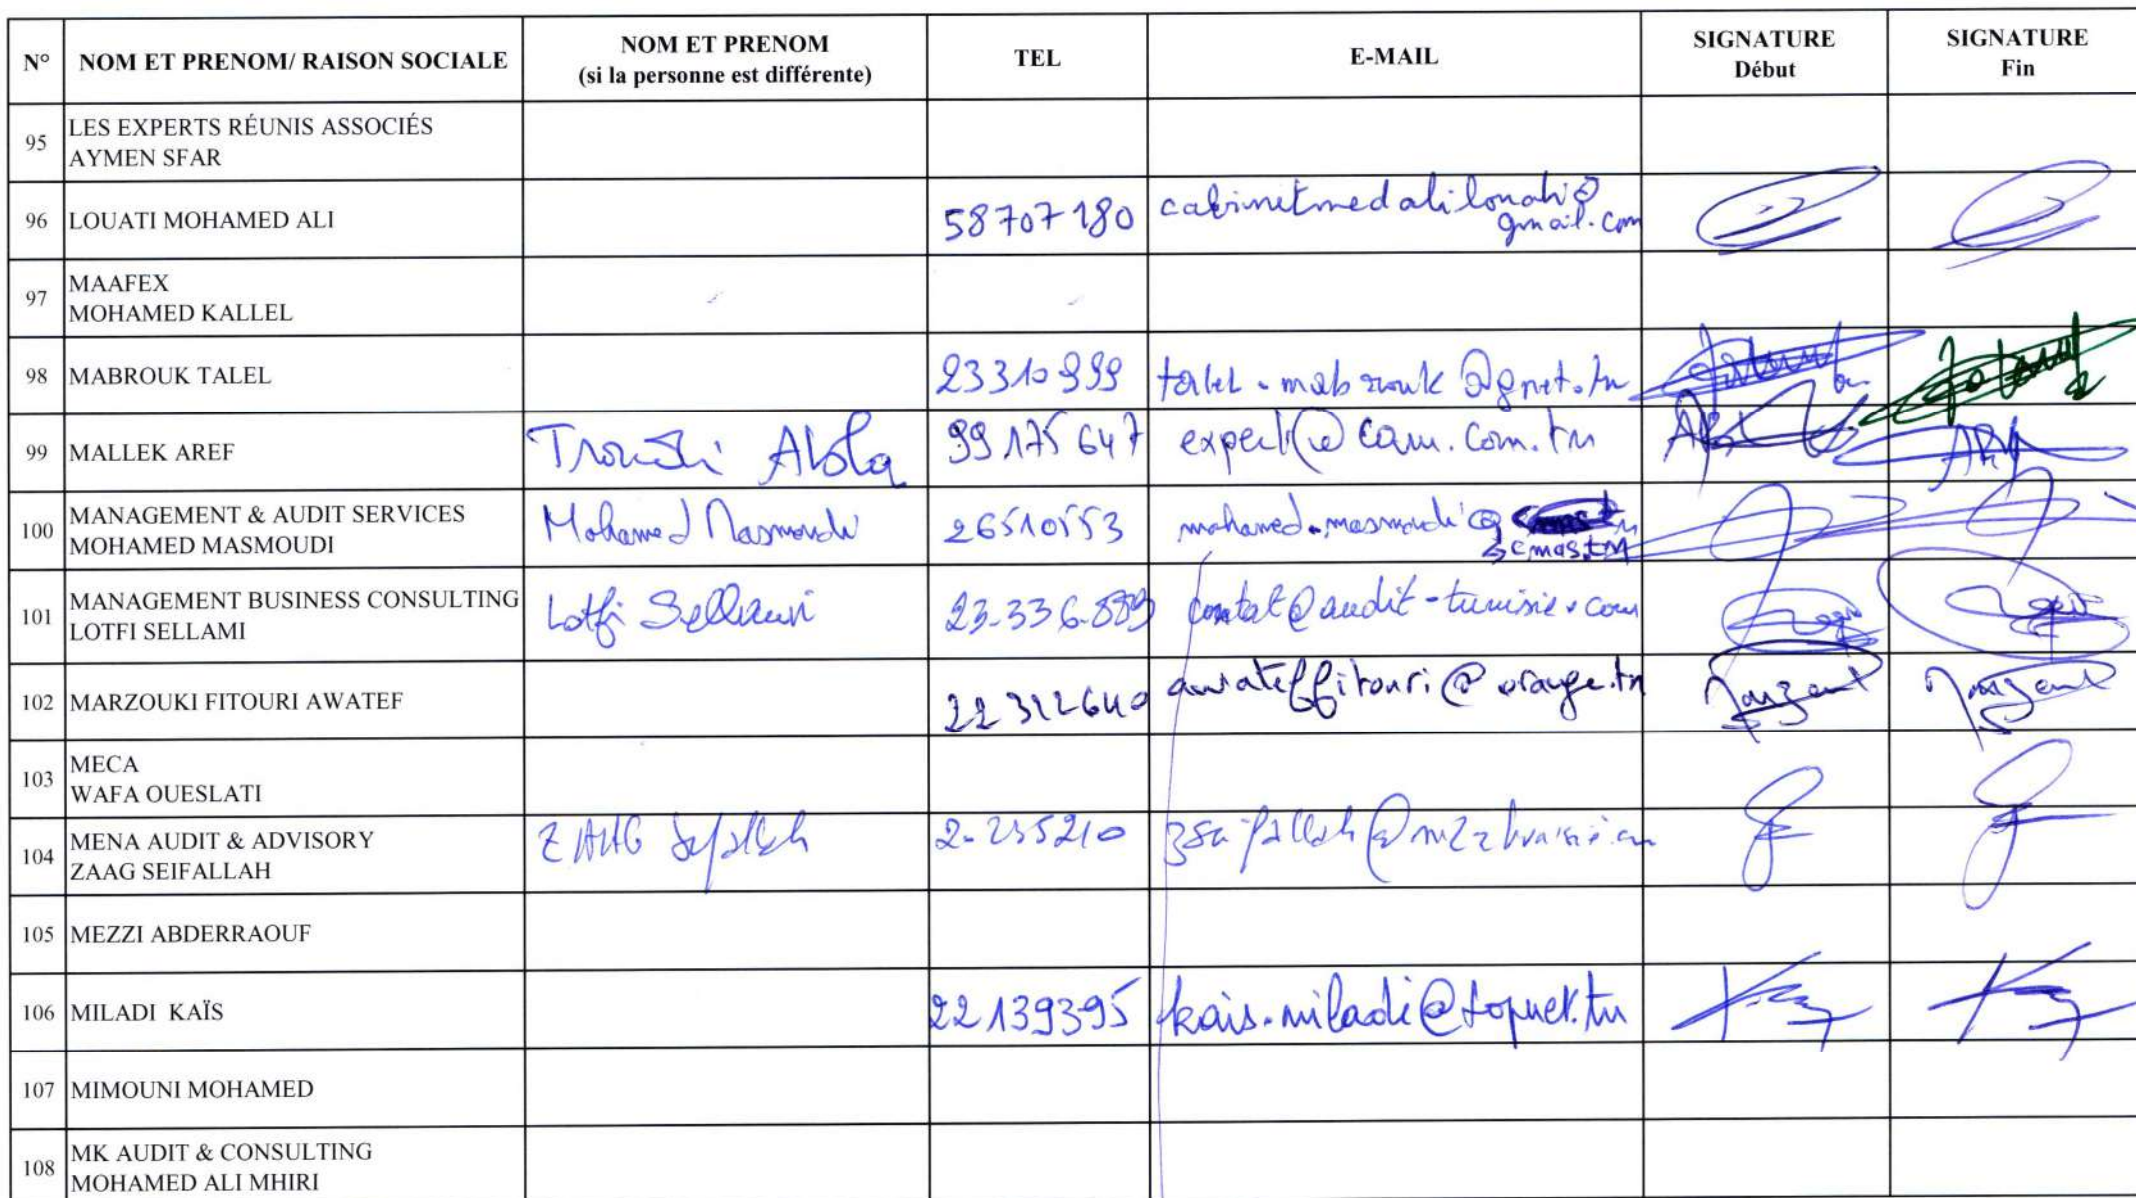 N° NOM ET PRENOM/ RAISON SOCIALE NOM ET PRENOM (si la personne est différente) TEL E-MAIL SIGNATURE Début SIGNATURE Fin
95 LES EXPERTS RÉUNIS ASSOCIÉS
AYMEN SFAR
96 LOUATI MOHAMED ALI 58707180 cabinetmedalilouati@
gmail.com
97 MAAFEX
MOHAMED KALLEL
98 MABROUK TALEL 23310999 talel.mabrouk@gnet.tn
99 MALLEK AREF 99175647 cam.com.tn
100 MANAGEMENT & AUDIT SERVICES
MOHAMED MASMOUDI Mohamed Masmoudi 26510553 mohamed.masmoudi@
cmas.tn
101 MANAGEMENT BUSINESS CONSULTING
LOTFI SELLAMI Lotfi Sellami 23.336.889 contact@audit-tunisie.com
102 MARZOUKI FITOURI AWATEF 22312640 awateffitouri@orange.tn
103 MECA
WAFA OUESLATI
104 MENA AUDIT & ADVISORY
ZAAG SEIFALLAH ZAAG Seifallah
105 MEZZI ABDERRAOUF
106 MILADI KAÏS 22139395 kais.miladi@topnet.tn
107 MIMOUNI MOHAMED
108 MK AUDIT & CONSULTING
MOHAMED ALI MHIRI